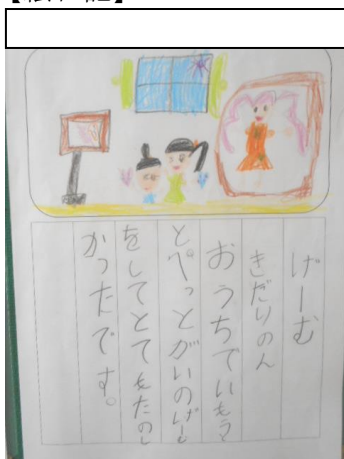 げーむ
きだりのん
おうちでいもう
とぺっとがいのげーむ
をしてとてもたのし
かったです。